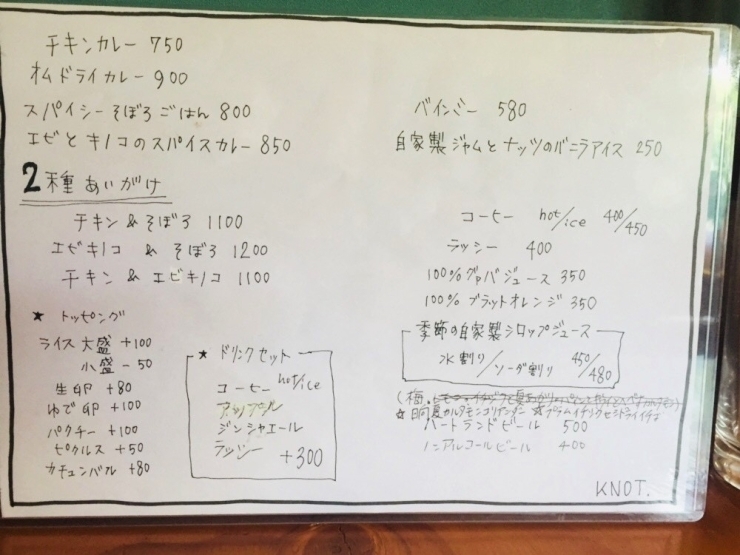 チキンカレー 750
オムドライカレー 900
スパイシーそぼろごはん 800
エビとキノコのスパイスカレー 850
2種あいがけ
チキン & そぼろ 1100
エビキノコ & そぼろ 1200
チキン & エビキノコ 1100
★ トッピング
ライス大盛 +100
小盛 - 50
生卵 +80
ゆで卵 +100
パクチー +100
ピクルス +50
カチュンバル +80
★ ドリンクセット
コーヒー hot/ice
アップル
ジンジャエール
ラッシー
+300
バインミー 580
自家製ジャムとナッツのバニラアイス 250
コーヒー hot/ice 400/450
ラッシー 400
100% グァバジュース 350
100% ブラッドオレンジ 350
季節の自家製シロップジュース
水割り/ソーダ割り 450/480
(梅.
☆日向夏カルダモン
ハートランドビール 500
ノンアルコールビール 400
KNOT.